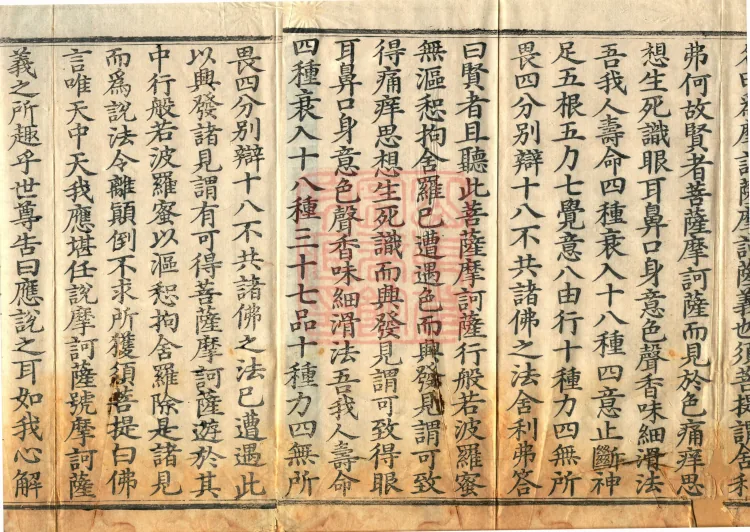 摩訶薩摩訶薩義也須菩提謂舍利
弗何故賢者菩薩摩訶薩而見於色痛痒思
想生死識眼耳鼻口身意色聲香味細滑法
吾我人壽命四種衰入十八種四意止斷神
足五根五力七覺意八由行十種力四無所
畏四分別辯十八不共諸佛之法舍利弗答
曰賢者且聽此菩薩摩訶薩行般若波羅蜜
無漚惒拘舍羅已遭遇色而興發見謂可致
得痛痒思想生死識而興發見謂可致得眼
耳鼻口身意色聲香味細滑法吾我人壽命
四種衰入十八種三十七品十種力四無所
畏四分別辯十八不共諸佛之法已遭遇此
以興發諸見謂有可得菩薩摩訶薩遊於其
中行般若波羅蜜以漚惒拘舍羅除是諸見
而爲說法令離顚倒不求所獲須菩提白佛
言唯天中天我應堪任說摩訶薩號摩訶薩
義之所趣乎世尊告曰應說之耳如我心解